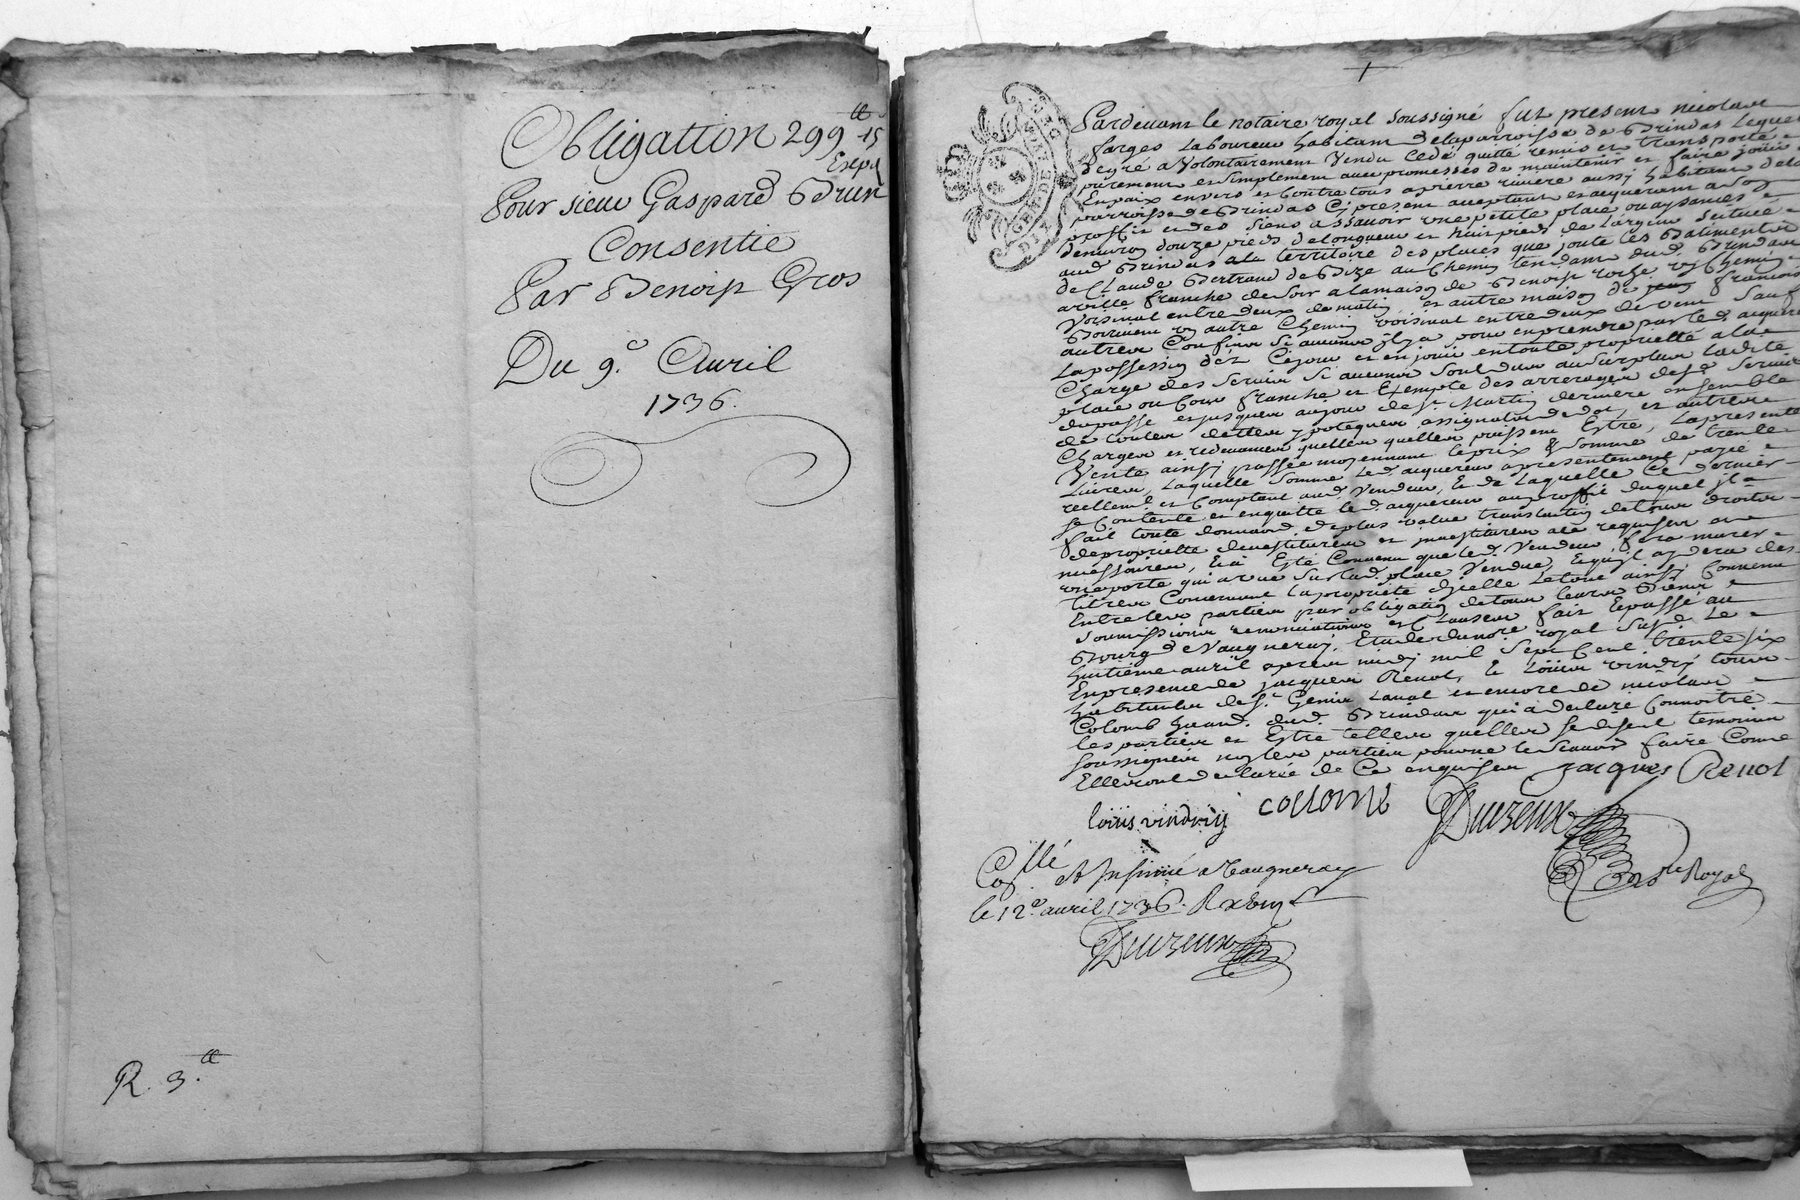 Obligation 299 ll 15
Expé
Pour sieur Gaspard Brun
Consentie
Par Benoist Gros
Du 9.e Avril
1736.
R. 3.ll
GEN DE LYON
DIX
Pardevant le notaire royal soussigné fut present nicolas
farges Laboureur habitant delaparroisse de Brindas Lequel
degré a volontairement vendu cedé quitté remis et transporté
purement et simplement avec promesses de maintenir et faire jouir
Enpaix envers et contre tous a pierre riviere aussi habitant dela
parroisse de Brindas Cy present acceptant et acquerant a son
proffit et des siens assavoir une petite place ou aysances
denviron douze pieds delongueur et huit pieds de Largeur scituée
aud Brindas ala territoire des places que joute les Batiments
de Claude Bertrand de Bize au chemin tendant dud. Brindas
aville franche de soir alamaison de Benoist roche un chemin
voisinal entre deux de matin et autre maison de francois
un autre chemin voisinal entre deux de vent sauf
autres Confins si aucuns il ya pour en prendre par led. acquereur
Lapossession dez Cejour et en jouir entoute proprieté ala
Charge des servis si aucuns sont dus au surplus Ladite
place ou Cour franche et Exempte des arrerages desd. servis
dupassé et jusques aujour de St. Martin dernier ensemble
de toutes dettes ypoteques assignations de dot, et autres
Charges et redevances quelles quelles puissent Estre, Lapresente
Vente ainsy passée moyennant leprix & somme de trente
Livres, Laquelle somme Led. acquereur apresentement payé
reellemt. et Comptant aud. Vendeur, & de Laquelle Ce dernier
se Contente et enquitte led. acquereur au proffit duquel il a
fait toute donnaon. deplus value translation detous droits
deproprieté devestitures et investitures ace requises et
necessaires, Eta Esté Convenu que led. Vendeur fera murer
une porte quia vue surlad. place vendue, Equil aydera des
titres Concernant laproprieté dicelle Letout ainsy Convenu
Entre les parties par obligation detous leurs Biens
soumissions renonciations et Clauses fait Epassé au
Bourg de Vaugneray, Etude dunore. royal susd. Le
huitieme avril apres midy mil sept Cent trente six
Enpresence de jacques Renol, & Loüis vindry tous
habitants de St. Genis Laval et encore de nicolas
Colomb dud. Brindas qui a declaré connoitre
les parties et Estre telles quelles se disent temoins
soussignes non les parties pourne le scavoir faire Come
Elles ont declarée de ce enquises Jacques Renol
loüis vindry collomb Duizeux
nore. Royal
Collé et Insinué a Vaugneray
le 12.e avril 1736. R
Duizeux